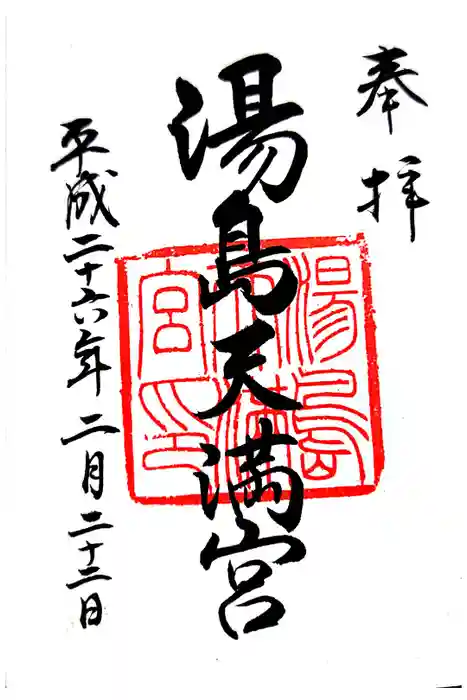 奉拝
湯島天満宮
平成二十六年二月二十二日
湯島
天満
宮印